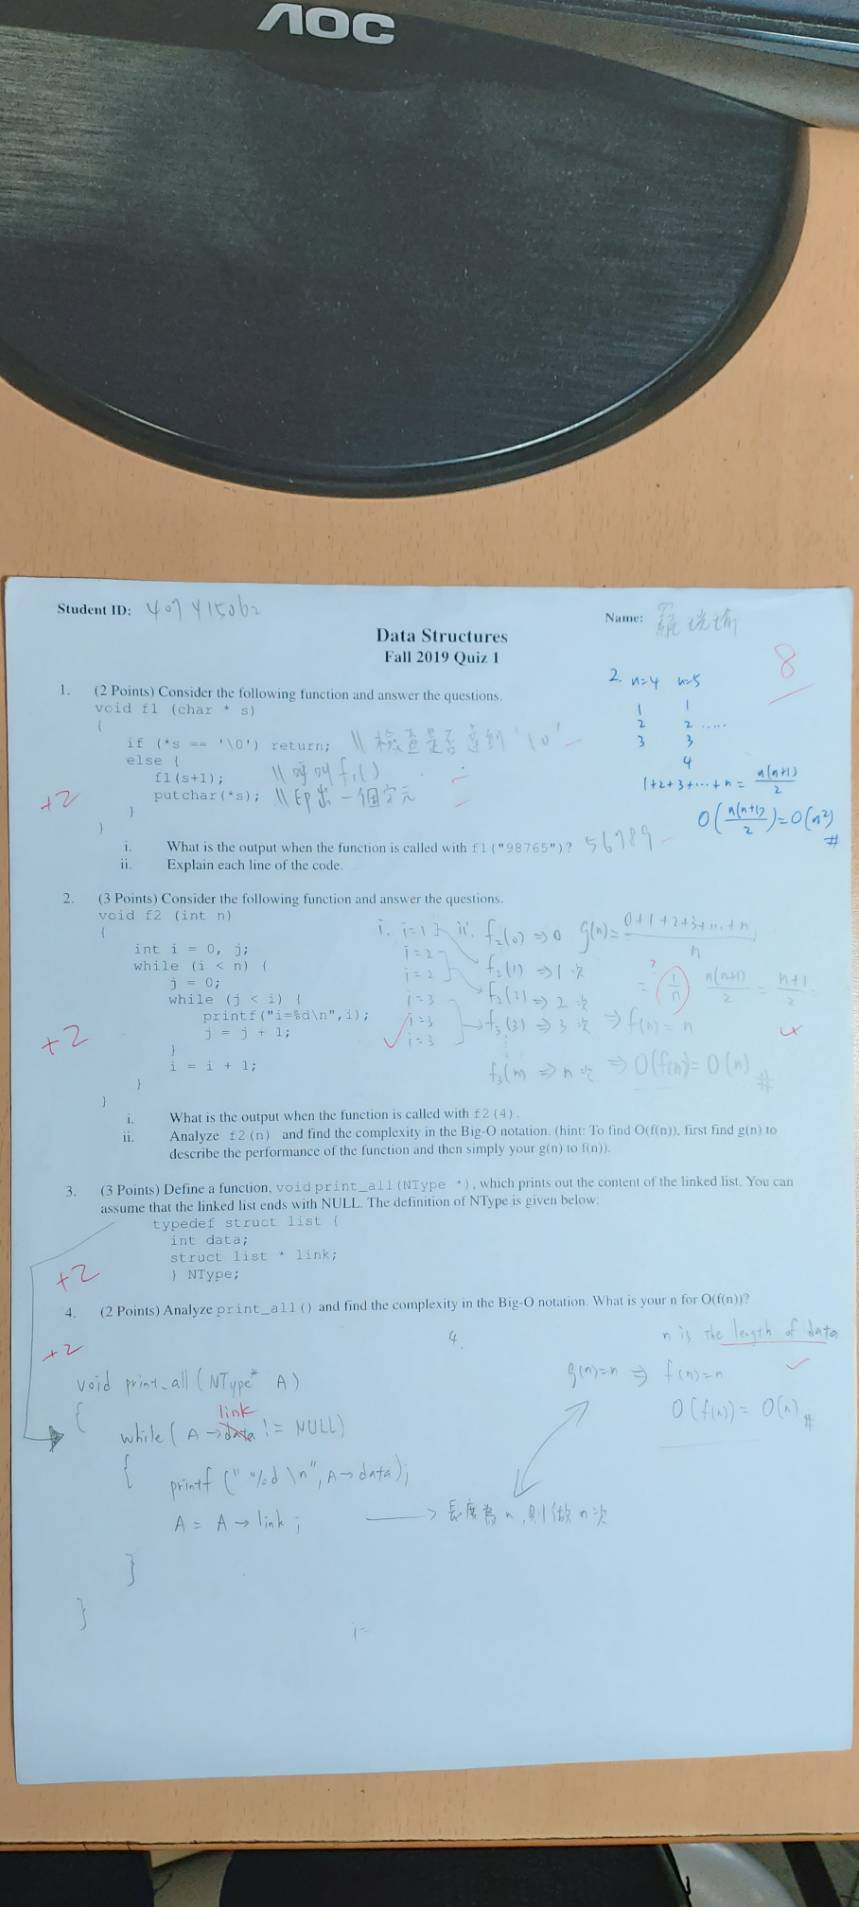 AOC
Student ID: 407415062
Name: 羅
Data Structures
Fall 2019 Quiz 1
8
1. (2 Points) Consider the following function and answer the questions.
void f1 (char * s)
{
if (*s == '\0') return; \\ 檢查是否達到 '\0'
else {
f1(s+1); \\ 呼叫 f1()
putchar(*s); \\ 印出一個字元
}
}
+2
i. What is the output when the function is called with f1("98765")? 56789
ii. Explain each line of the code.
2. n=4 n=5
1 1
2 2 .....
3 3
4
1+2+3+...+n = n(n+1)/2
O(n(n+1)/2)=O(n²) #
2. (3 Points) Consider the following function and answer the questions.
void f2 (int n)
{
int i = 0, j;
while (i < n) {
j = 0;
while (j < i) {
printf("i=%d\n",i);
j = j + 1;
}
i = i + 1;
}
}
+2
i. i=1
i=2
i=2
i=3
i=3
i=3
ii. f2(0) => 0
f2(1) => 1 次
f2(2) => 2 次
f3(3) => 3 次 => f(n) = n
f3(n => n 次 => O(f(n)) = O(n) #
g(n) = 0+1+2+3+...+n / n
? = (1/n) n(n+1)/2 = n+1/2
i. What is the output when the function is called with f2(4).
ii. Analyze f2(n) and find the complexity in the Big-O notation. (hint: To find O(f(n)), first find g(n) to
describe the performance of the function and then simply your g(n) to f(n)).
3. (3 Points) Define a function, void print_all(NType *), which prints out the content of the linked list. You can
assume that the linked list ends with NULL. The definition of NType is given below:
typedef struct list {
int data;
struct list * link;
} NType;
+2
4. (2 Points) Analyze print_all() and find the complexity in the Big-O notation. What is your n for O(f(n))?
+2
4.
n is the length of data
g(n)=n => f(n)=n
O(f(n)) = O(n) #
void print_all (NType* A)
{
link
while ( A→data != NULL)
{
printf (" %d \n", A→data);
A = A → link ;
→ 長度為 n, 則做 n 次
}
}
i=